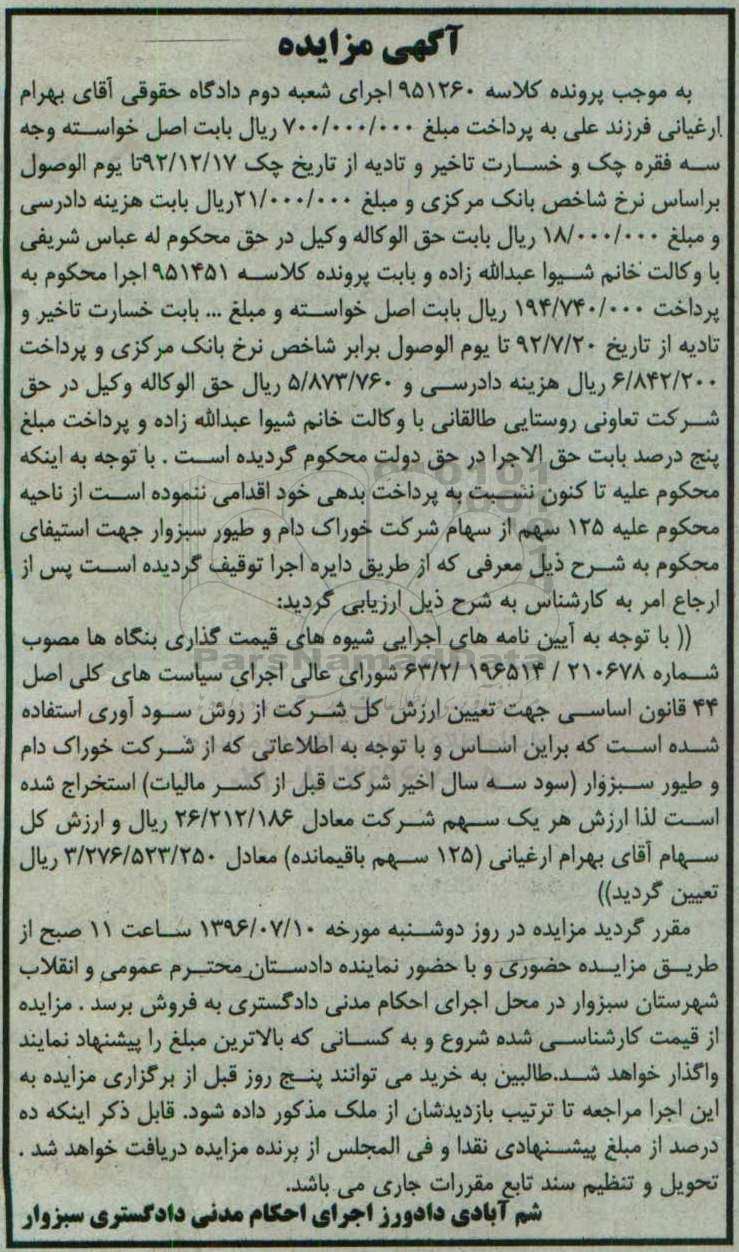 آگهی مزایده
به موجب پرونده کلاسه ۹۵۱۲۶۰ اجرای شعبه دوم دادگاه حقوقی آقای بهرام
ارغیانی فرزند علی به پرداخت مبلغ ۷۰۰/۰۰۰/۰۰۰ ریال بابت اصل خواسته وجه
سه فقره چک و خسارت تاخیر و تادیه از تاریخ چک ۹۲/۱۲/۱۷تا یوم الوصول
براساس نرخ شاخص بانک مرکزی و مبلغ ۲۱/۰۰۰/۰۰۰ریال بابت هزینه دادرسی
و مبلغ ۱۸/۰۰۰/۰۰۰ ریال بابت حق الوکاله وکیل در حق محکوم له عباس شریفی
با وکالت خانم شیوا عبدالله زاده و بابت پرونده کلاسه ۹۵۱۴۵۱ اجرا محکوم به
پرداخت ۱۹۴/۷۴۰/۰۰۰ ریال بابت اصل خواسته و مبلغ ... بابت خسارت تاخیر و
تادیه از تاریخ ۹۲/۷/۲۰ تا یوم الوصول برابر شاخص نرخ بانک مرکزی و پرداخت
۶/۸۴۲/۲۰۰ ریال هزینه دادرسی و ۵/۸۷۳/۷۶۰ ریال حق الوکاله وکیل در حق
شرکت تعاونی روستایی طالقانی با وکالت خانم شیوا عبدالله زاده و پرداخت مبلغ
پنج درصد بابت حق الاجرا در حق دولت محکوم گردیده است . با توجه به اینکه
محکوم علیه تا کنون نسبت به پرداخت بدهی خود اقدامی ننموده است از ناحیه
محکوم علیه ۱۲۵ سهم از سهام شرکت خوراک دام و طیور سبزوار جهت استیفای
محکوم به شرح ذیل معرفی که از طریق دایره اجرا توقیف گردیده است پس از
ارجاع امر به کارشناس به شرح ذیل ارزیابی گردید:
(( با توجه به آیین نامه های اجرایی شیوه های قیمت گذاری بنگاه ها مصوب
شماره ۲۱۰۶۷۸ / ۱۹۶۵۱۴ /۶۳/۲ شورای عالی اجرای سیاست های کلی اصل
۴۴ قانون اساسی جهت تعیین ارزش کل شرکت از روش سود آوری استفاده
شده است که براین اساس و با توجه به اطلاعاتی که از شرکت خوراک دام
و طیور سبزوار (سود سه سال اخیر شرکت قبل از کسر مالیات) استخراج شده
است لذا ارزش هر یک سهم شرکت معادل ۲۶/۲۱۲/۱۸۶ ریال و ارزش کل
سهام آقای بهرام ارغیانی (۱۲۵ سهم باقیمانده) معادل ۳/۲۷۶/۵۲۳/۲۵۰ ریال
تعیین گردید))
مقرر گردید مزایده در روز دوشنبه مورخه ۱۳۹۶/۰۷/۱۰ ساعت ۱۱ صبح از
طریق مزایده حضوری و با حضور نماینده دادستان محترم عمومی و انقلاب
شهرستان سبزوار در محل اجرای احکام مدنی دادگستری به فروش برسد . مزایده
از قیمت کارشناسی شده شروع و به کسانی که بالاترین مبلغ را پیشنهاد نمایند
واگذار خواهد شد.طالبین به خرید می توانند پنج روز قبل از برگزاری مزایده به
این اجرا مراجعه تا ترتیب بازدیدشان از ملک مذکور داده شود. قابل ذکر اینکه ده
درصد از مبلغ پیشنهادی نقدا و فی المجلس از برنده مزایده دریافت خواهد شد .
تحویل و تنظیم سند تابع مقررات جاری می باشد.
شم آبادی دادورز اجرای احکام مدنی دادگستری سبزوار
ParsNamadData